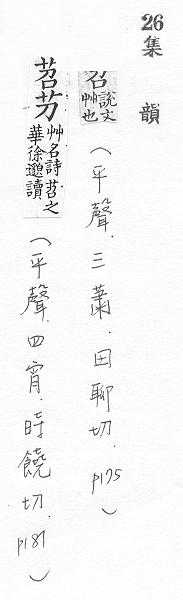 26
集韻
苕 說文艸也（平聲．三蕭．田聊切．p175）
苕芀 艸名詩苕之華徐邈讀（平聲．四宵．時饒切．p181）